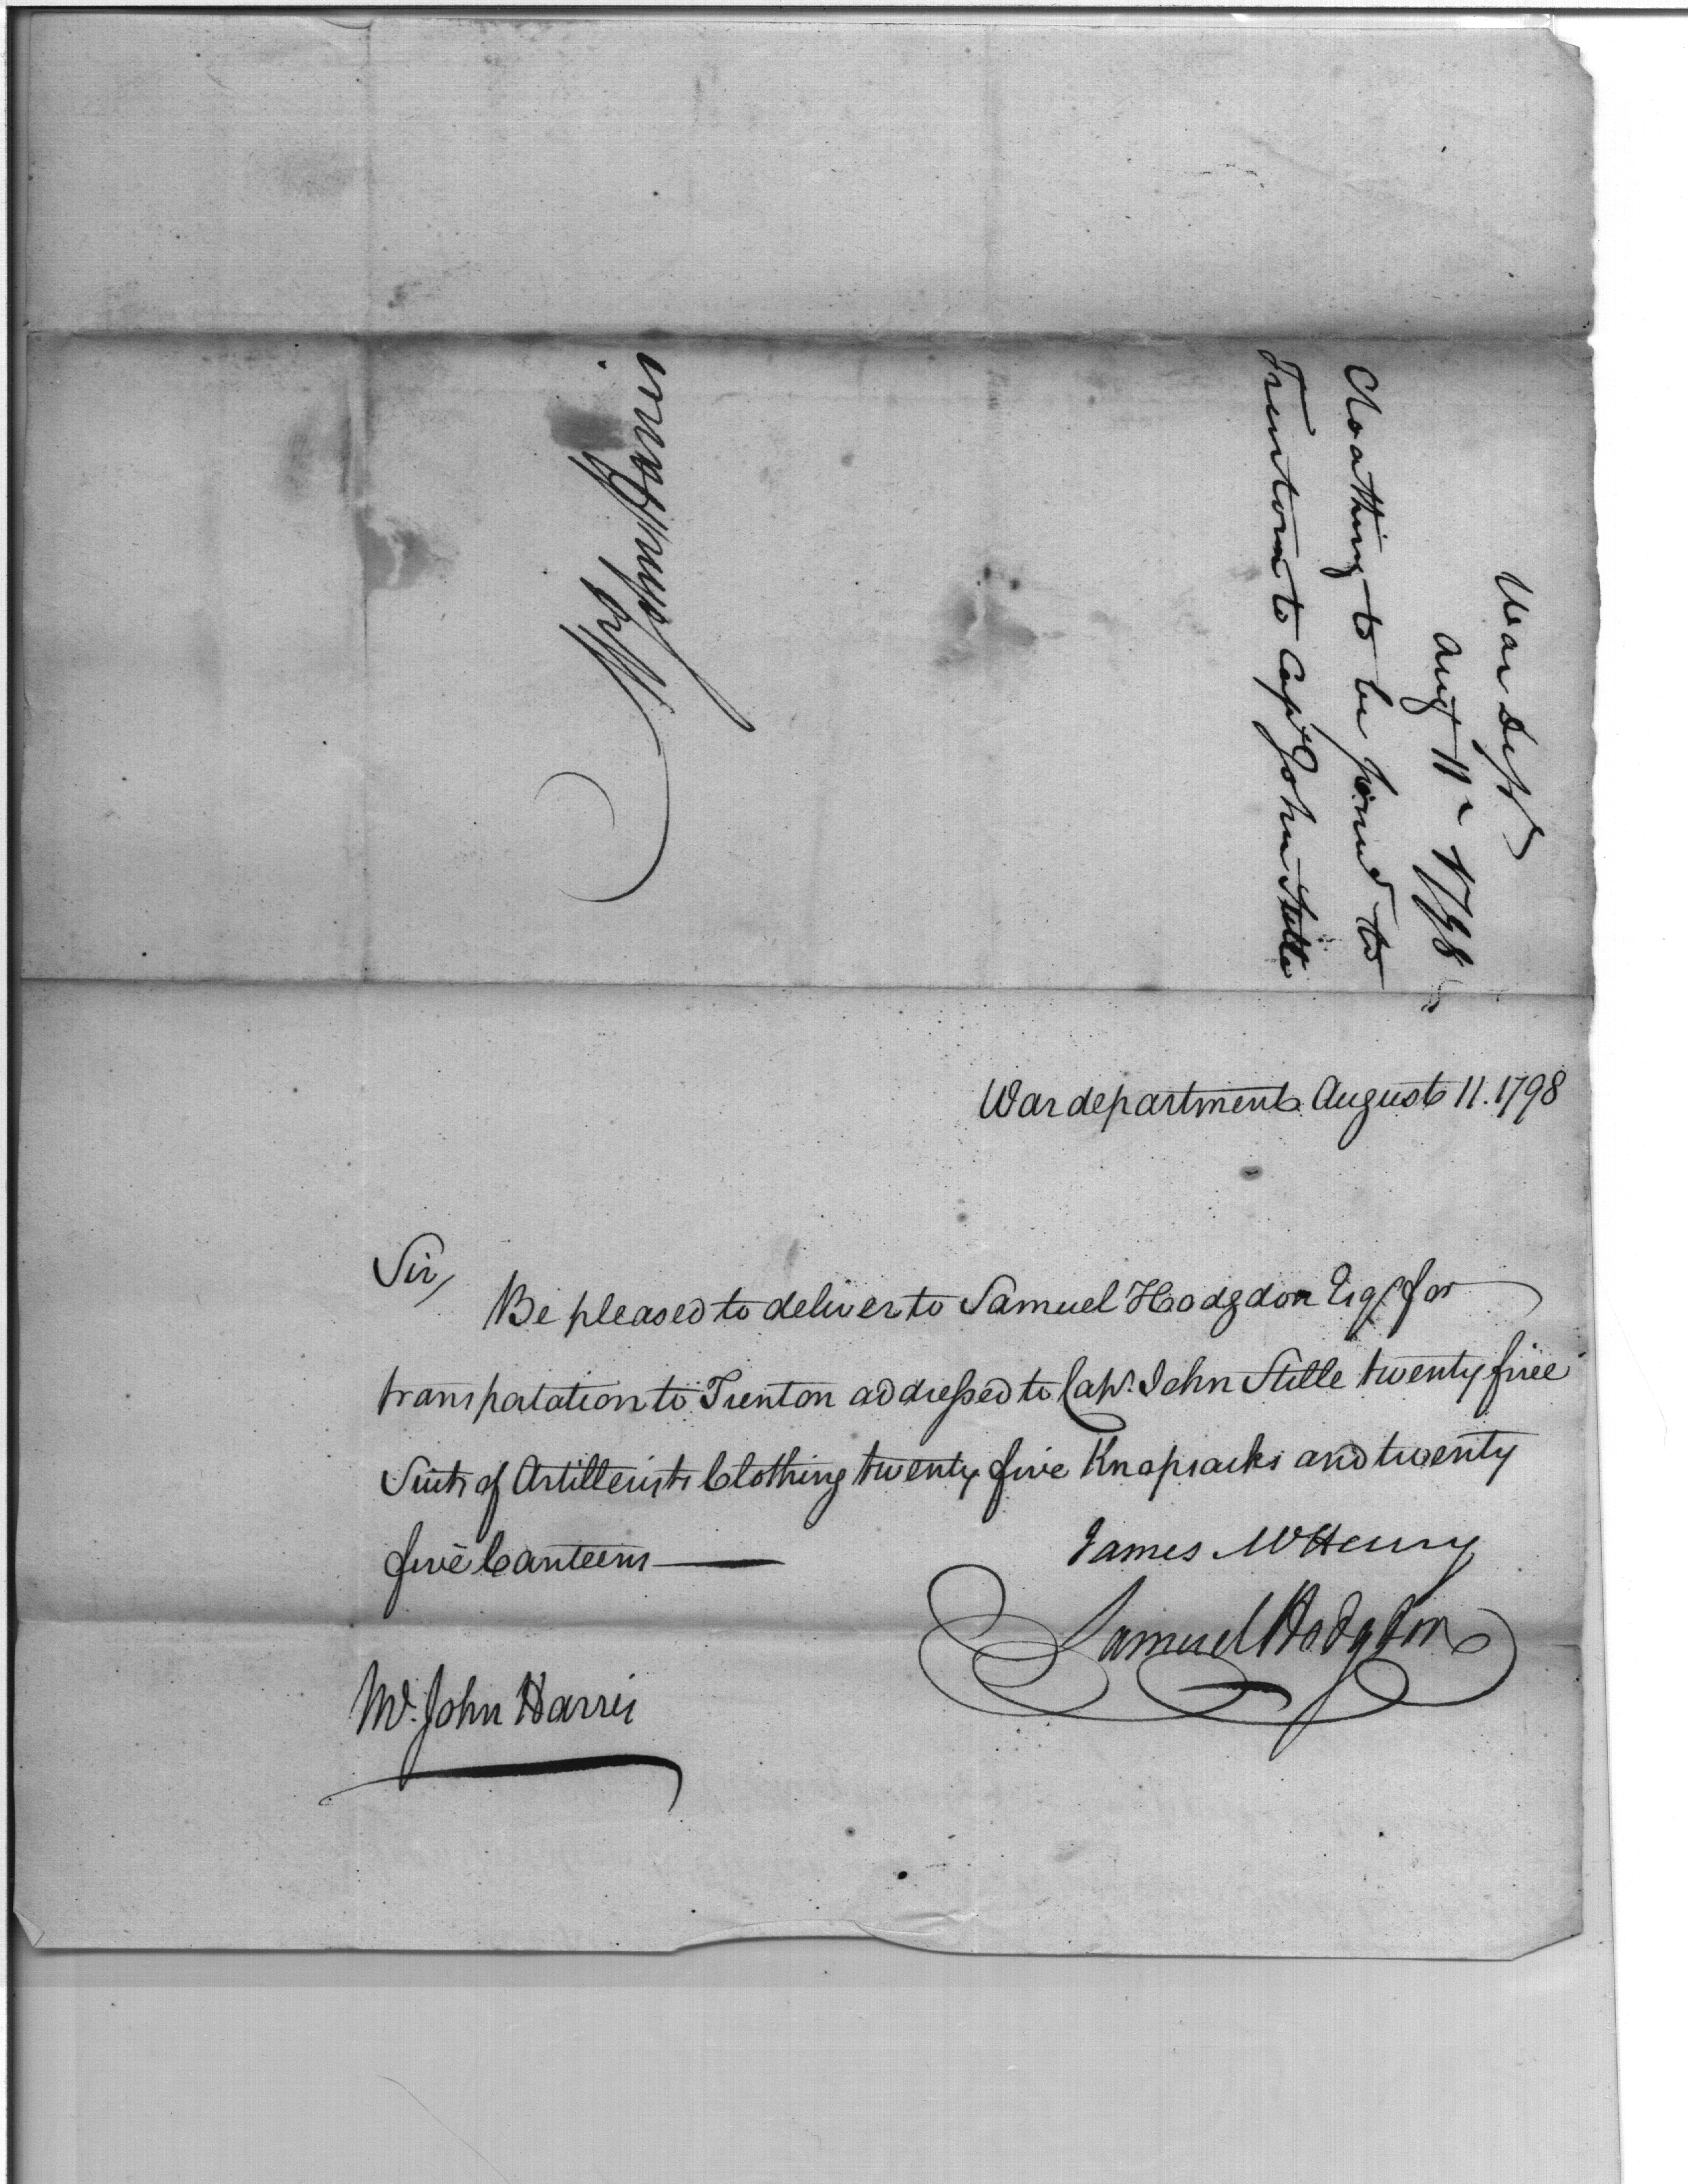 War Dept
Aug 11th 1798
Cloathing to be forwd to
Trenton to Capt John Stille
Mr John Harris
War department August 11. 1798
Sir,
Be pleased to deliver to Samuel Hodgdon Esqr. for
transportation to Trenton addressed to Capt. John Stille twenty five
Suits of Artillerists Clothing twenty five Knapsacks and twenty
five Canteens
James McHenry
Samuel Hodgdon
Mr. John Harris